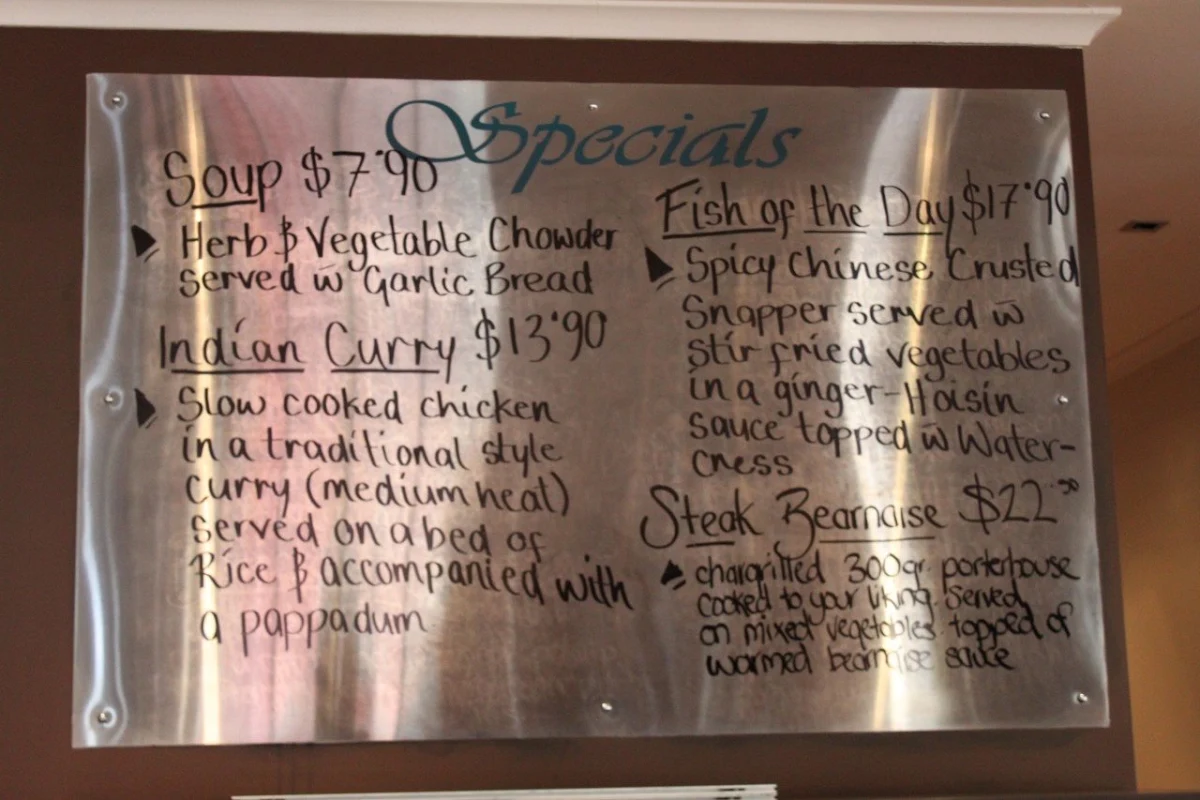 Specials
Soup $7.90
Herb & Vegetable Chowder
served w̄ Garlic Bread
Indian Curry $13.90
Slow cooked chicken
in a traditional style
curry (medium heat)
served on a bed of
Rice & accompanied with
a pappadum
Fish of the Day $17.90
Spicy Chinese Crusted
Snapper served w̄
stir fried vegetables
in a ginger-Hoisin
sauce topped w̄ Water-
cress
Steak Bearnaise $22.90
chargrilled 300gr porterhouse
cooked to your liking. Served
on mixed vegetables topped of
warmed bearnaise sauce